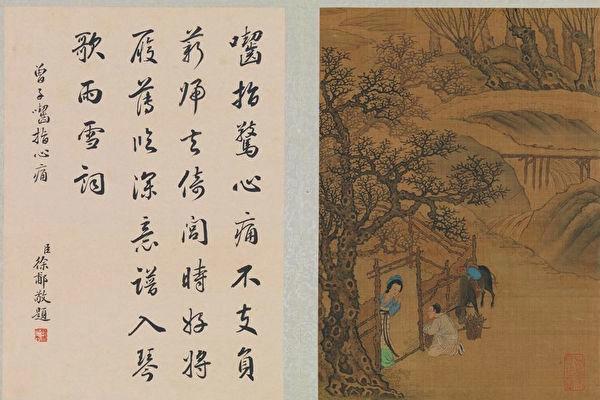 嚙指驚心痛不支負
薪歸去倚閭時好將
履薄臨深意譜入琴
歌雨雪詞
曾子嚙指心痛
臣徐郙敬題